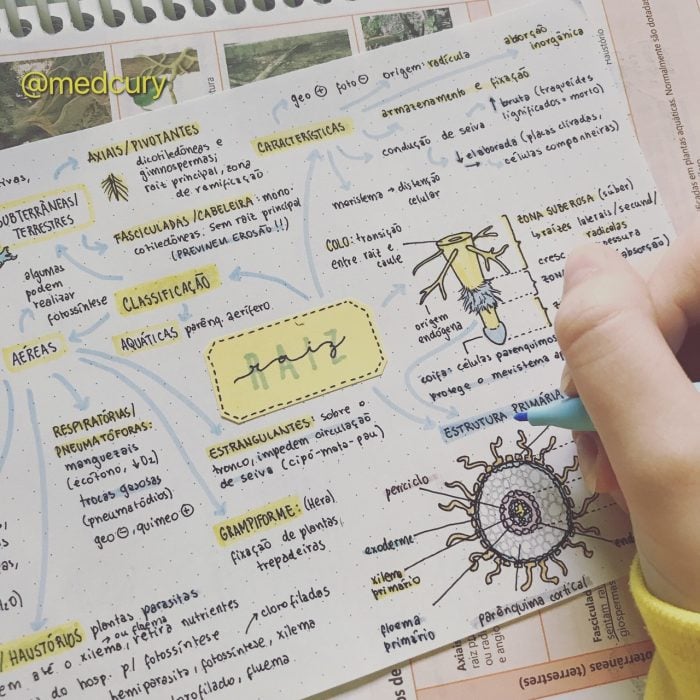 @medcury
absorção
inorgânica
geo ⊕ foto ⊖ origem: radícula
AXIAIS/PIVOTANTES
dicotiledôneas e
gimnospermas;
raiz principal, zona
de ramificação
CARACTERÍSTICAS
armazenamento e fixação
condução de seiva
↑ bruta (traqueídes
lignificados = morto)
↓ elaborada (placas crivadas,
células companheiras)
meristema → distensão
celular
SUBTERRÂNEAS/
TERRESTRES
FASCICULADAS/CABELEIRA: mono-
cotiledôneas. Sem raiz principal
(PREVINEM EROSÃO!!)
COLO: transição
entre raiz e
caule
ZONA SUBEROSA (súber)
↳ raízes laterais/secund/
radículas
origem
endógena
coifa: células parenquimos
protege o meristema
algumas
podem
realizar
fotossíntese
CLASSIFICAÇÃO
AQUÁTICAS parênq. aerífero
AÉREAS
RAIZ
raiz
ESTRUTURA PRIMÁRIA
RESPIRATÓRIAS/
PNEUMATÓFORAS:
manguezais
(ecótono, ↓O₂)
trocas gasosas
(pneumatódios)
geo ⊖, quimeo ⊕
ESTRANGULANTES: sobre o
tronco, impedem circulação
de seiva (cipó-mata-pau)
GRAMPIFORME: (Hera)
fixação de plantas
trepadeiras
periciclo
exoderme
xilema
primário
floema
primário
parênquima cortical
/ HAUSTÓRIOS
plantas parasitas
↗ ou floema
em até o xilema, retira nutrientes
do hosp. p/ fotossíntese
→ clorofilados
hemiparasita, fotossíntese, xilema
clorofilado, floema
Haustório
Normalmente são dotadas
em plantas aquáticas.
Fasciculad
sentam raí
giospermas
Axial
raiz p
ou rad
e angio
oterrâneas (terrestres)